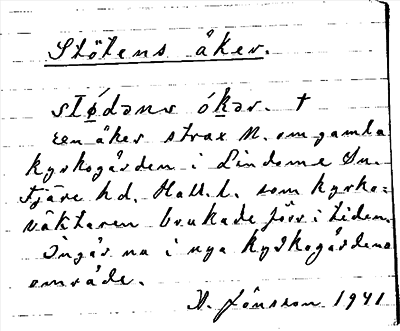 Stötens åker.
stø̱dəns ó̱kər. †
En åker strax N. om gamla
kyrkogården i Lindome Sn.
Fjäre hd. Hall. l. som kyrko-
väktaren brukade förr i tiden.
Ingår nu i nya kyrkogårdens
område.
A. Jönsson 1941